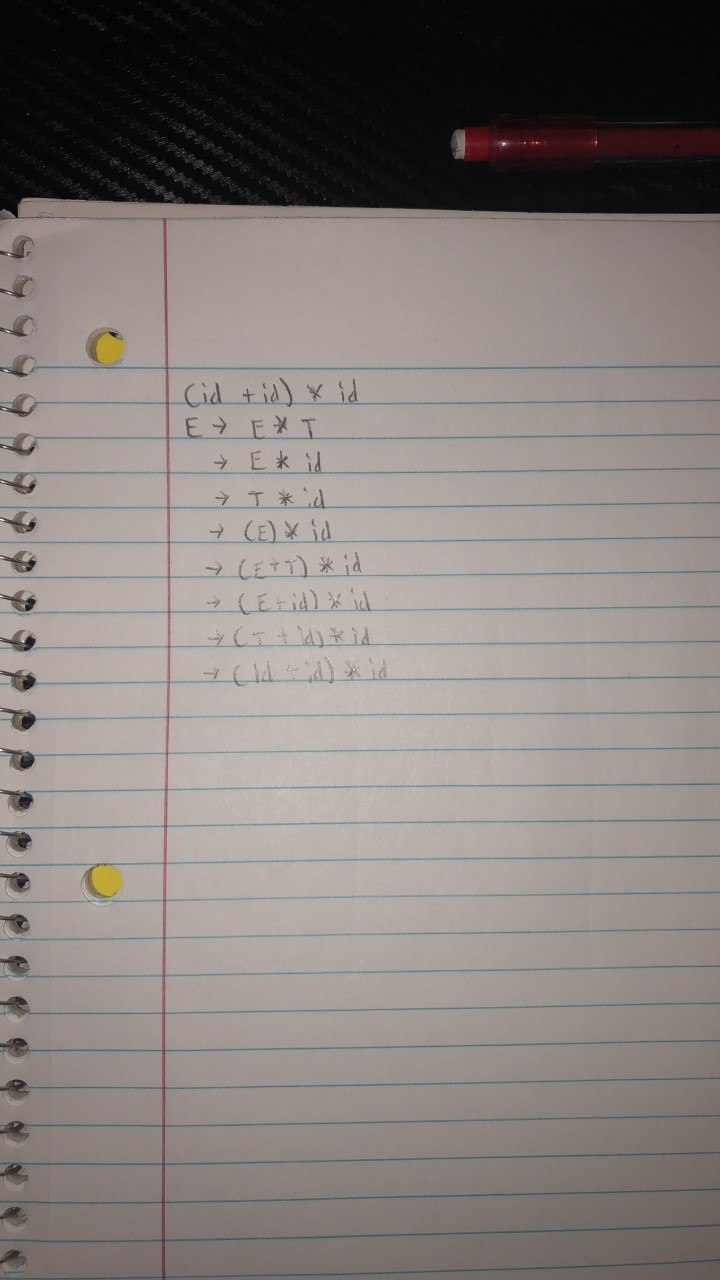 (id + id) * id
E → E * T
→ E * id
→ T * id
→ (E) * id
→ (E+T) * id
→ (E+id) * id
→ (T + id) * id
→ (id + id) * id